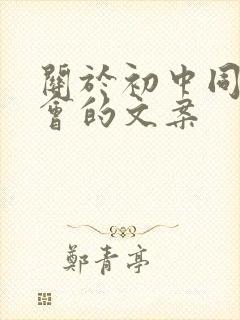 關於初中同
會的文案
鄭青亭